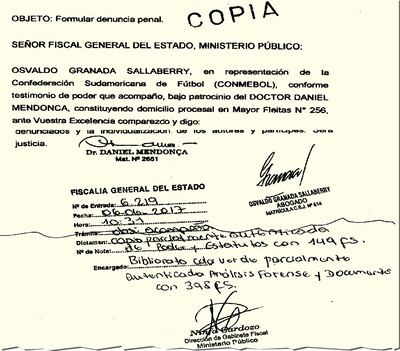 OBJETO: Formular denuncia penal.
COPIA
SEÑOR FISCAL GENERAL DEL ESTADO, MINISTERIO PÚBLICO:
OSVALDO GRANADA SALLABERRY, en representación de la
Confederación Sudamericana de Fútbol (CONMEBOL), conforme
testimonio de poder que acompaño, bajo patrocinio del DOCTOR DANIEL
MENDONCA, constituyendo domicilio procesal en Mayor Fleitas N° 256,
ante Vuestra Excelencia comparezco y digo:
denunciados y la individualización de los autores y partícipes. Será
justicia.
Dr. DANIEL MENDONÇA
Mat. Nº 2661
OSVALDO GRANADA SALLABERRY
ABOGADO
MATRICULA C.S.J. Nº 614
FISCALIA GENERAL DEL ESTADO
Nº de Entrada: 6.219
Fecha: 06-06-2017
Hora: 10:31
Trámite: dos acompaña
Dictamen: copia parcialmente autenticada
Nº de Nota: de Poder y Estatutos con 149 fs.
Bibliorato color verde parcialmente
Encargado:
autenticada Análisis Forense y Documento
con 398 fs.
Cardozo
Dirección de Gabinete Fiscal
Ministerio Público